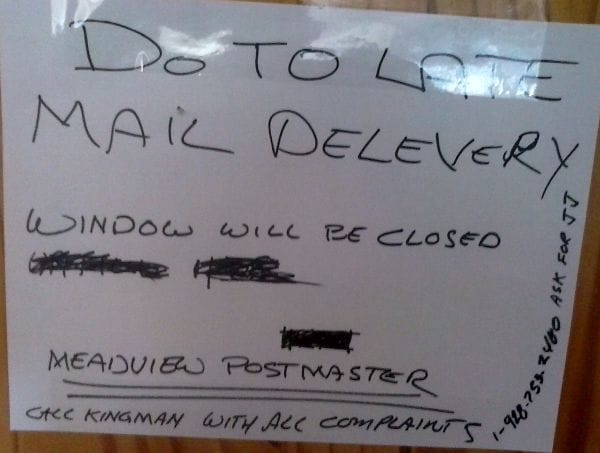 DO TO LATE
MAIL DELEVERY
WINDOW WILL BE CLOSED
MEADVIEW POSTMASTER
CALL KINGMAN WITH ALL COMPLAINTS
1-928-753-2480 ASK FOR JJ